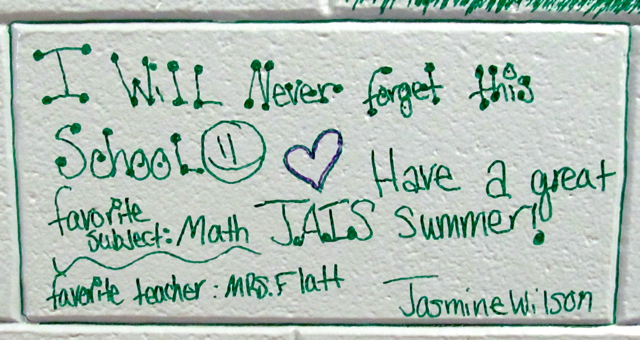 I WiLL Never forget this
SchooL
Have a great
JAIS summer!
favorite
subject: Math
favorite teacher: MRS. Flatt
Jasmine Wilson